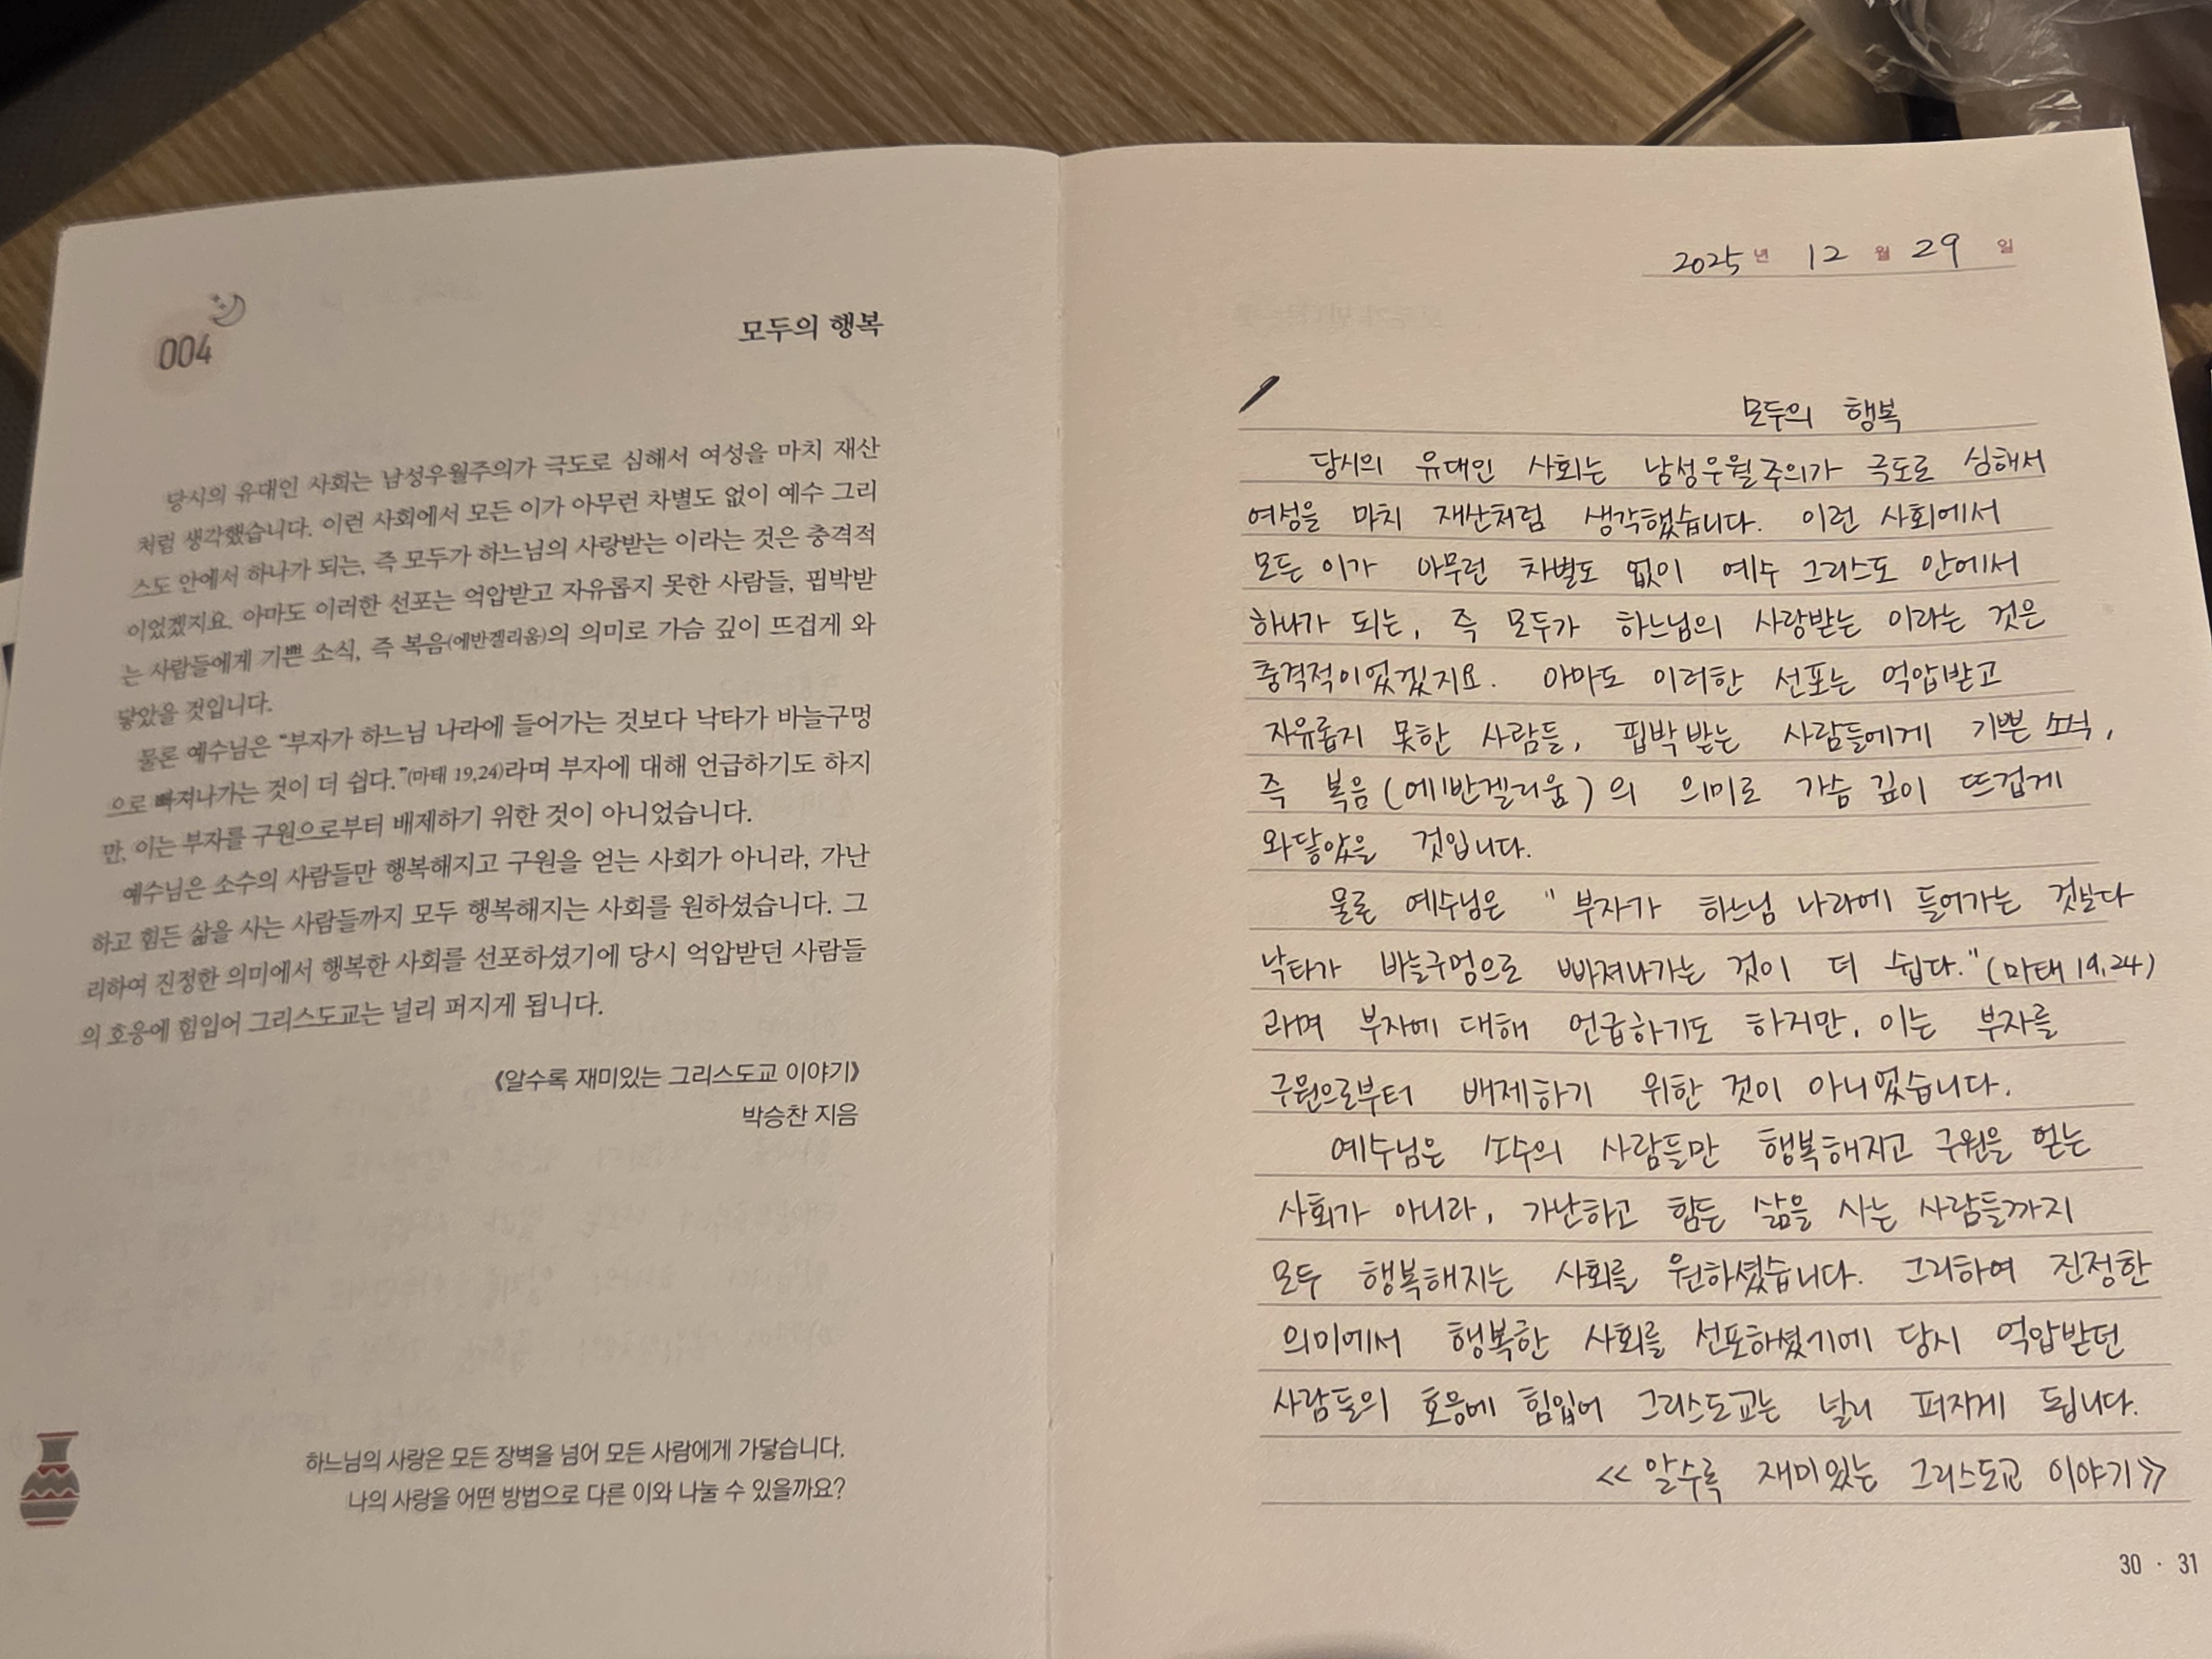 004
모두의 행복
당시의 유대인 사회는 남성우월주의가 극도로 심해서 여성을 마치 재산
처럼 생각했습니다. 이런 사회에서 모든 이가 아무런 차별도 없이 예수 그리
스도 안에서 하나가 되는, 즉 모두가 하느님의 사랑받는 이라는 것은 충격적
이었겠지요. 아마도 이러한 선포는 억압받고 자유롭지 못한 사람들, 핍박받
는 사람들에게 기쁜 소식, 즉 복음(에반겔리움)의 의미로 가슴 깊이 뜨겁게 와
닿았을 것입니다.
물론 예수님은 “부자가 하느님 나라에 들어가는 것보다 낙타가 바늘구멍
으로 빠져나가는 것이 더 쉽다.”(마태 19,24)라며 부자에 대해 언급하기도 하지
만, 이는 부자를 구원으로부터 배제하기 위한 것이 아니었습니다.
예수님은 소수의 사람들만 행복해지고 구원을 얻는 사회가 아니라, 가난
하고 힘든 삶을 사는 사람들까지 모두 행복해지는 사회를 원하셨습니다. 그
리하여 진정한 의미에서 행복한 사회를 선포하셨기에 당시 억압받던 사람들
의 호응에 힘입어 그리스도교는 널리 퍼지게 됩니다.
《알수록 재미있는 그리스도교 이야기》
박승찬 지음
하느님의 사랑은 모든 장벽을 넘어 모든 사람에게 가닿습니다.
나의 사랑을 어떤 방법으로 다른 이와 나눌 수 있을까요?
2025년 12월 29일
모두의 행복
당시의 유대인 사회는 남성우월주의가 극도로 심해서
여성을 마치 재산처럼 생각했습니다. 이런 사회에서
모든 이가 아무런 차별도 없이 예수 그리스도 안에서
하나가 되는, 즉 모두가 하느님의 사랑받는 이라는 것은
충격적이었겠지요. 아마도 이러한 선포는 억압받고
자유롭지 못한 사람들, 핍박받는 사람들에게 기쁜 소식,
즉 복음(에반겔리움)의 의미로 가슴 깊이 뜨겁게
와닿았을 것입니다.
물론 예수님은 "부자가 하느님 나라에 들어가는 것보다
낙타가 바늘구멍으로 빠져나가는 것이 더 쉽다."(마태 19,24)
라며 부자에 대해 언급하기도 하지만, 이는 부자를
구원으로부터 배제하기 위한 것이 아니었습니다.
예수님은 소수의 사람들만 행복해지고 구원을 얻는
사회가 아니라, 가난하고 힘든 삶을 사는 사람들까지
모두 행복해지는 사회를 원하셨습니다. 그리하여 진정한
의미에서 행복한 사회를 선포하셨기에 당시 억압받던
사람들의 호응에 힘입어 그리스도교는 널리 퍼지게 됩니다.
<<알수록 재미있는 그리스도교 이야기>>
30 · 31